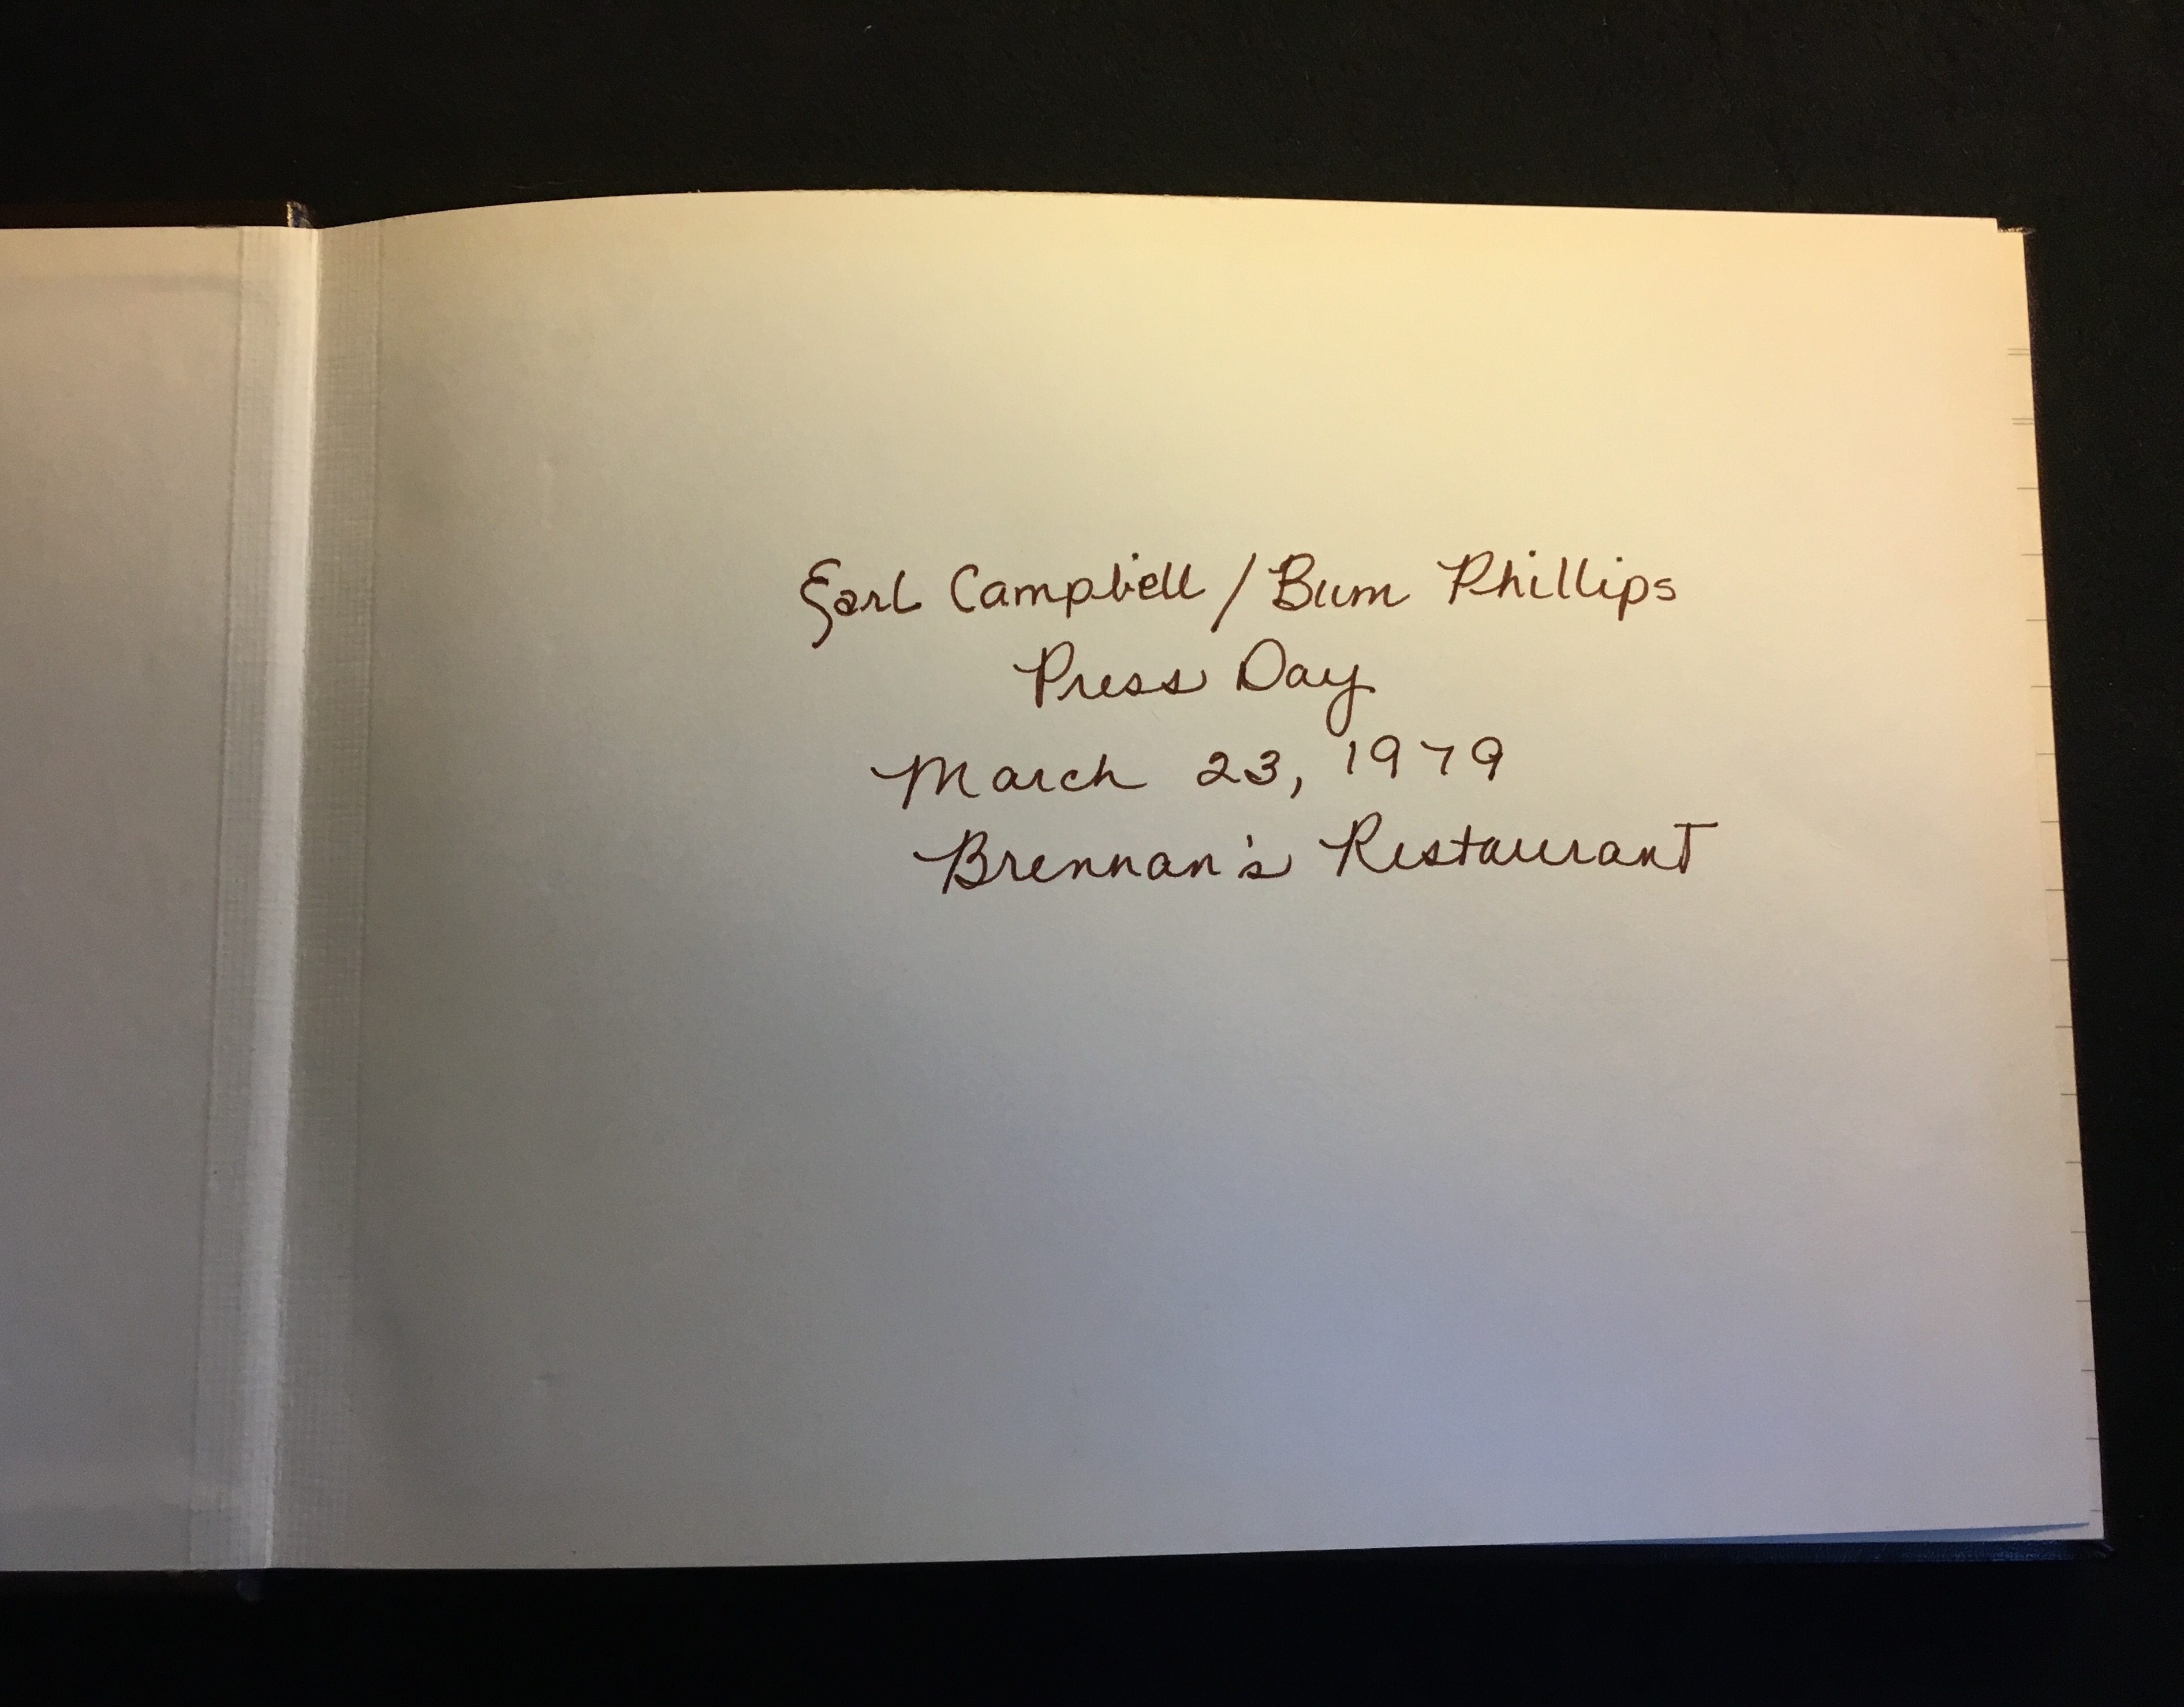 Earl Campbell / Bum Phillips
Press Day
March 23, 1979
Brennan's Restaurant